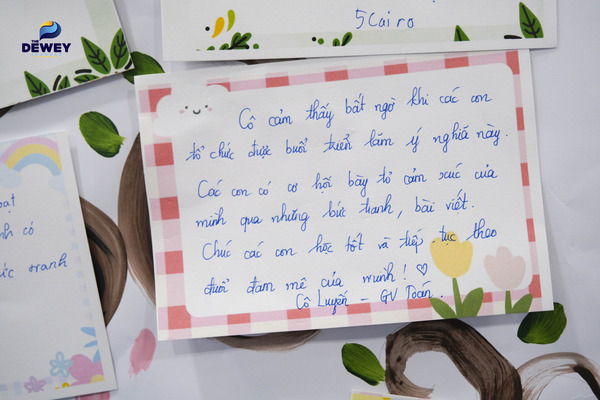 THE
DEWEY
5Cairo
Cô cảm thấy bất ngờ khi các con
tổ chức được buổi triển lãm ý nghĩa này.
Các con có cơ hội bày tỏ cảm xúc của
mình qua những bức tranh, bài viết.
Chúc các con học tốt và tiếp tục theo
đuổi đam mê của mình! ♡
Cô Luyến - GV Toán.
ạt
nh có
ức tranh